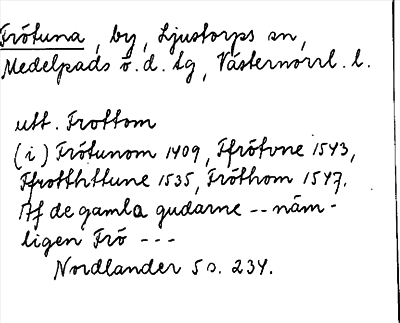 Frötuna, by, Ljustorps sn,
Medelpads ö. d. tg, Västernorrl. l.
utt. Frottom
(i) Frötunom 1409, Ffrötvne 1543,
Ffrotthttune 1535, Fröthom 1547.
Af de gamla gudarne -- näm-
ligen Frö ---
Nordlander 5 s. 234.